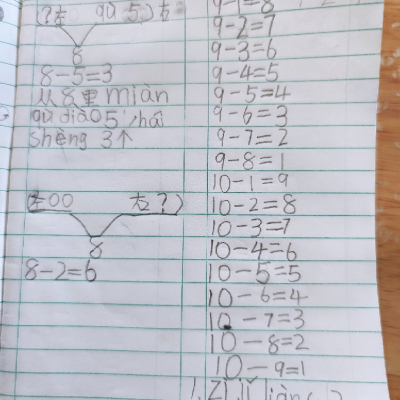 (?左 qù 5)右
8
8-5=3
从8里miàn
qù diào5,hái
shèng 3个
左00 右?)
8
8-2=6
9-1=8
9-2=7
9-3=6
9-4=5
9-5=4
9-6=3
9-7=2
9-8=1
10-1=9
10-2=8
10-3=7
10-4=6
10-5=5
10-6=4
10-7=3
10-8=2
10-9=1